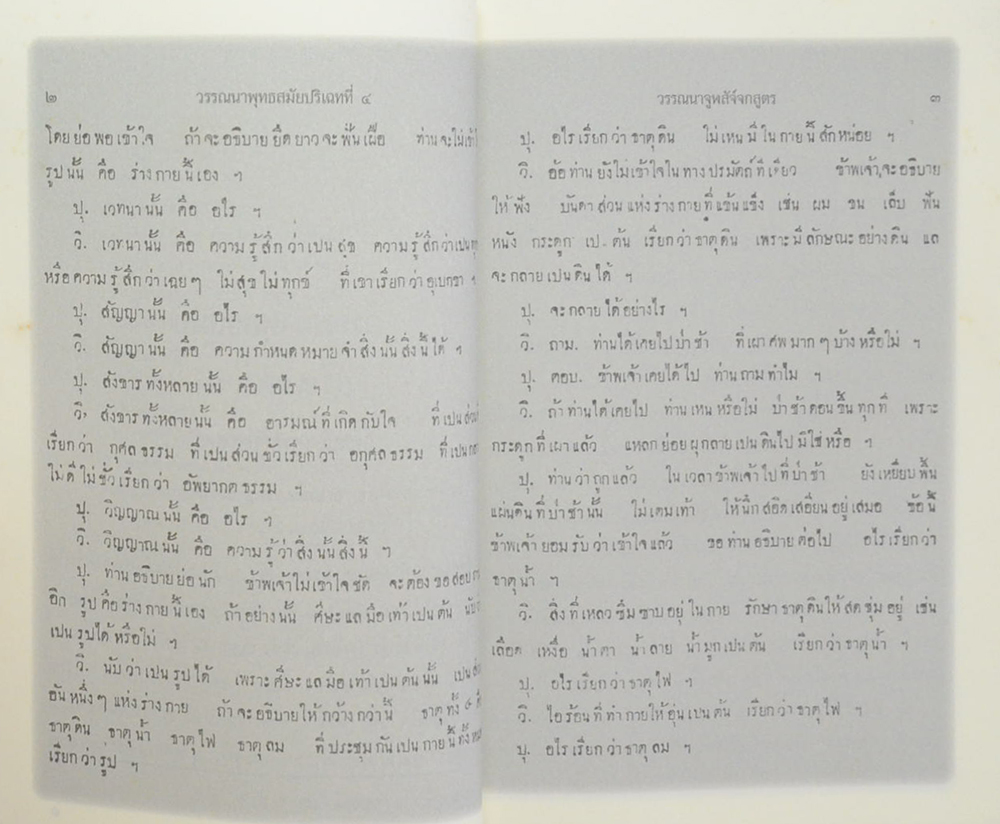 ๒ วรรณนาพุทธสมัยปริเฉทที่ ๔
โดยย่อพอเข้าใจ ถ้าจะอธิบายยืดยาวจะฟั่นเฝือ ท่านจะไม่เข้าใ
รูปนั้น คือ ร่างกายนี้เอง ฯ
ปุ. เวทนานั้น คือ อไร ฯ
วิ. เวทนานั้น คือ ความรู้สึกว่าเปนสุข ความรู้สึกว่าเปนทุ
หรือความรู้สึกว่าเฉยๆ ไม่สุขไม่ทุกข์ ที่เขาเรียกว่าอุเบกขา
ปุ. สัญญานั้น คือ อไร ฯ
วิ. สัญญานั้น คือ ความกำหนดหมายจำสิ่งนั้นสิ่งนี้ได้ ฯ
ปุ. สังขารทั้งหลายนั้น คือ อไร ฯ
วิ. สังขารทั้งหลายนั้น คือ อารมณ์ที่เกิดกับใจ ที่เปนส่วน
เรียกว่า กุศลธรรม ที่เปนส่วนชั่วเรียกว่า อกุศลธรรม ที่เปน
ไม่ดีไม่ชั่วเรียกว่า อัพยากตธรรม ฯ
ปุ. วิญญาณนั้น คือ อไร ฯ
วิ. วิญญาณนั้น คือ ความรู้ว่าสิ่งนั้นสิ่งนี้ ฯ
ปุ. ท่านอธิบายย่อนัก ข้าพเจ้าไม่เข้าใจชัด จะต้องขอสอบ
อีก รูปคือร่างกายนี้เอง ถ้าอย่างนั้น ศีษะแลมือเท้าเปนต้น นับ
เปนรูปได้หรือไม่ ฯ
วิ. นับว่าเปนรูปได้ เพราะศีษะแลมือเท้าเปนต้นนั้น เปน
อันหนึ่งๆ แห่งร่างกาย ถ้าจะอธิบายให้กว้างกว่านี้ ธาตุทั้ง ๔ คื
ธาตุดิน ธาตุน้ำ ธาตุไฟ ธาตุลม ที่ประชุมกันเปนกายนี้ทั้ง
เรียกว่ารูป ฯ
วรรณนาจูฬสัจ์จกสูตร ๓
ปุ. อไรเรียกว่าธาตุดิน ไม่เหนมีในกายนี้สักหน่อย ฯ
วิ. อ้อท่านยังไม่เข้าใจในทางปรมัตถ์ทีเดียว ข้าพเจ้าจะอธิบาย
ให้ฟัง บันดาส่วนแห่งร่างกายที่แข้นแข็ง เช่น ผม ขน เล็บ ฟัน
หนัง กระดูก เปนต้น เรียกว่าธาตุดิน เพราะมีลักษณะอย่างดิน แล
จะกลายเปนดินได้ ฯ
ปุ. จะกลายได้อย่างไร ฯ
วิ. ถาม. ท่านได้เคยไปป่าช้า ที่เผาศพมากๆบ้างหรือไม่ ฯ
ปุ. ตอบ. ข้าพเจ้าเคยได้ไป ท่านถามทำไม ฯ
วิ. ถ้าท่านได้เคยไป ท่านเหนหรือไม่ ป่าช้าดอนขึ้นทุกที เพราะ
กระดูกที่เผาแล้ว แหลกย่อยผุกลายเปนดินไป มิใช่หรือ ฯ
ปุ. ท่านว่าถูกแล้ว ในเวลาข้าพเจ้าไปที่ป่าช้า ยังเหยียบพื้น
แผ่นดินที่ป่าช้านั้น ไม่เตมเท้า ให้นึกสอิดเสอียนอยู่เสมอ ข้อนี้
ข้าพเจ้ายอมรับว่าเข้าใจแล้ว ขอท่านอธิบายต่อไป อไรเรียกว่า
ธาตุน้ำ ฯ
วิ. สิ่งที่เหลวซึมซาบอยู่ในกาย รักษาธาตุดินให้สดชุ่มอยู่ เช่น
เลือด เหงื่อ น้ำตา น้ำลาย น้ำมูกเปนต้น เรียกว่าธาตุน้ำ ฯ
ปุ. อไรเรียกว่าธาตุไฟ ฯ
วิ. ไอร้อนที่ทำกายให้อุ่นเปนต้น เรียกว่าธาตุไฟ ฯ
ปุ. อไรเรียกว่าธาตุลม ฯ